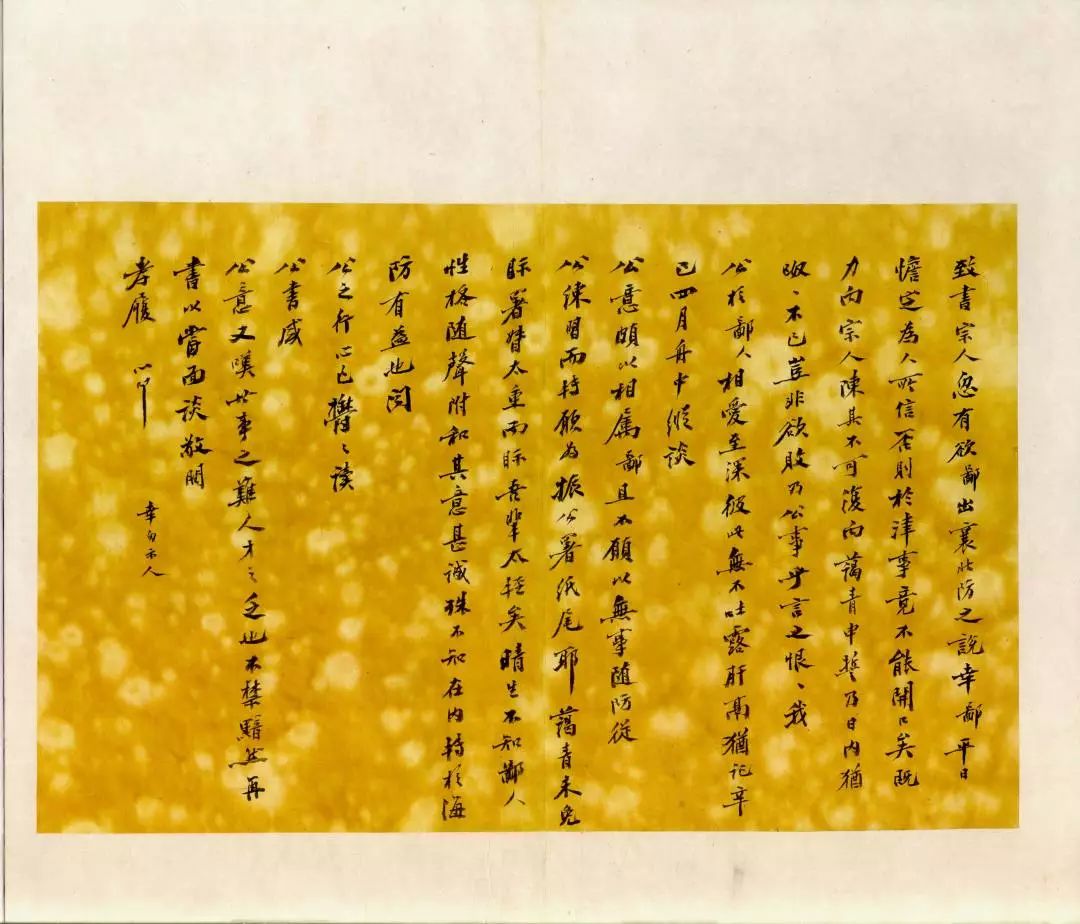 致書宗人忽有欲鄙出襄北防之說幸鄙平日
憺定為人所信否則於津事竟不能開口矣既
力向宗人陳其不可復向藹青申誓乃日內猶
呶、不已豈非欲敗乃公事乎言之恨、我
公於鄙人相愛至深彼此無不吐露肝鬲猶記辛
巳四月舟中縱談
公意頗以相屬鄙且不願以無事隨防從
公練習而特願為振公署紙尾耶藹青未免
际署督太重而际吾輩太輕矣晴生不知鄙人
性格隨聲附和其意甚誠殊不知在內特於海
防有益也閱
公之行心已鬱、讀
公書咸
公意又嘆世事之難人才之乏也不禁黯然再
書以當面談敬問
孝履 心叩
幸勿示人